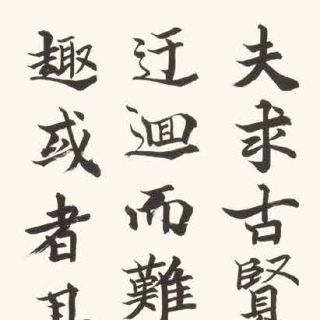 夫求古賢
迂迴而難
趣或者其